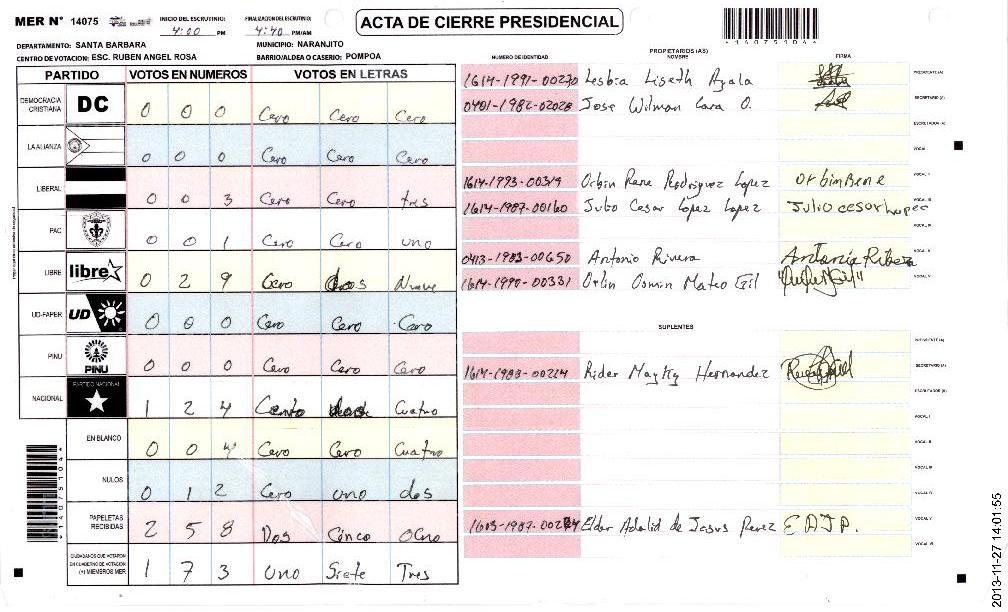 MER N° 14075
INICIO DEL ESCRUTINIO: 4:00 PM
FINALIZACION DEL ESCRUTINIO: 4:40 PM/AM
ACTA DE CIERRE PRESIDENCIAL
DEPARTAMENTO: SANTA BARBARA
MUNICIPIO: NARANJITO
CENTRO DE VOTACION: ESC. RUBEN ANGEL ROSA
BARRIO/ALDEA O CASERIO: POMPOA
PARTIDO VOTOS EN NUMEROS VOTOS EN LETRAS
DEMOCRACIA CRISTIANA DC 0 0 0 Cero Cero Cero
LA ALIANZA 0 0 0 Cero Cero Cero
LIBERAL 0 0 3 Cero Cero tres
PAC 0 0 1 Cero Cero uno
LIBRE libre 0 2 9 Cero dos Nueve
UD-FAPER UD 0 0 0 Cero Cero Cero
PINU PINU 0 0 0 Cero Cero Cero
NACIONAL PARTIDO NACIONAL 1 2 4 Cuatro
EN BLANCO 0 0 4 Cero Cero Cuatro
NULOS 0 1 2 Cero uno dos
PAPELETAS RECIBIDAS 2 5 8 Dos Cinco Ocho
CIUDADANOS QUE VOTARON EN CUADERNO DE VOTACION (+) MIEMBROS MER 1 7 3 Uno Siete Tres
PROPIETARIOS (AS)
NUMERO DE IDENTIDAD NOMBRE FIRMA
1614-1991-00270 Lesbia Liseth Ayala PRESIDENTE (A)
0401-1982-02028 Jose Wilman Lara O. SECRETARIO (A)
ESCRUTADOR (A)
VOCAL I
1614-1993-00319 Orbin Rene Rodriguez Lopez Orbin Rene VOCAL II
1614-1987-00160 Julio Cesar Lopez Lopez Julio cesar lopez VOCAL III
VOCAL IV
0413-1983-00650 Antonio Rivera Antonio Ribera
1614-1990-00331 Orlin Osmin Mateo Gil VOCAL V
SUPLENTES
PRESIDENTE (A)
1614-1988-00224 Rider Hernandez SECRETARIO (A)
ESCRUTADOR (A)
VOCAL I
VOCAL II
VOCAL III
VOCAL IV
Eldar Adalid de Jesus Perez E A J P. VOCAL V
VOCAL VI
2013-11-27 14:01:55